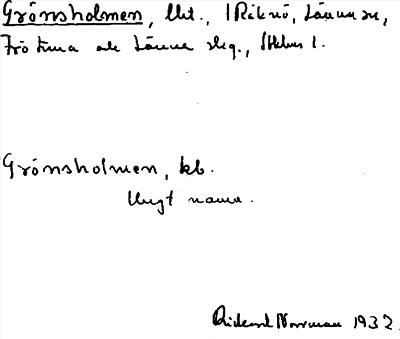 Grönsholmen, lht., I Riknö, Länna sn,
Frötuna och Länna skg., Sthlms l.
Grönsholmen, kb.
Ungt namn.
Rickard Norrman 1932.